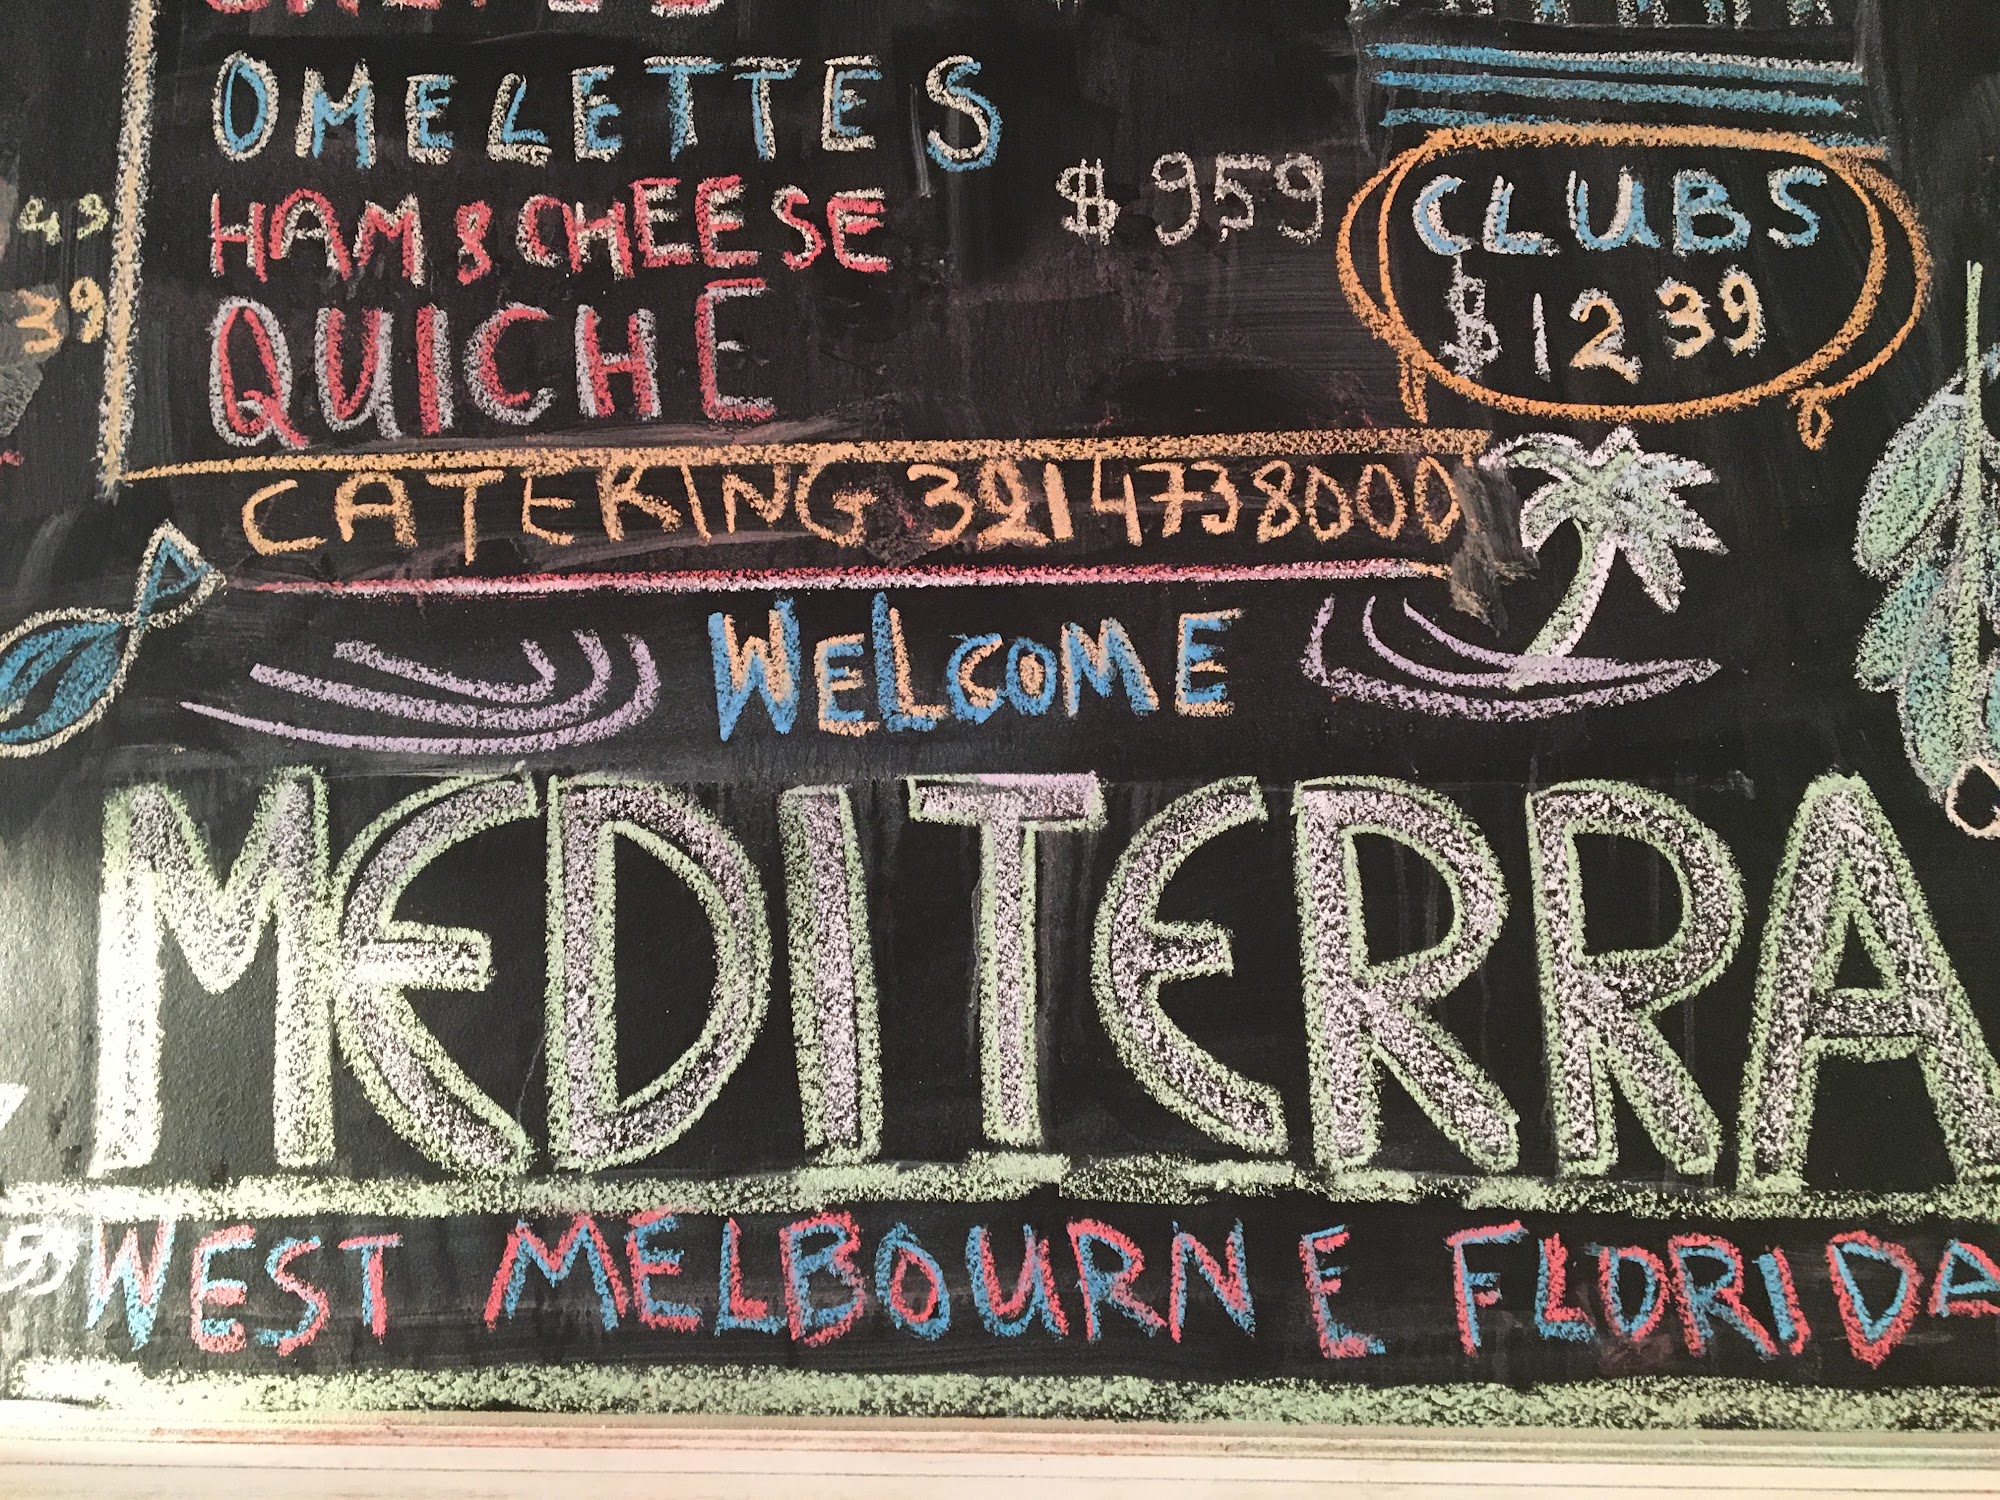 OMELETTES
HAM & CHEESE $959
QUICHE
CLUBS
$1239
49
39
CATERING 3214738000
WELCOME
MEDITERRA
WEST MELBOURNE FLORIDA